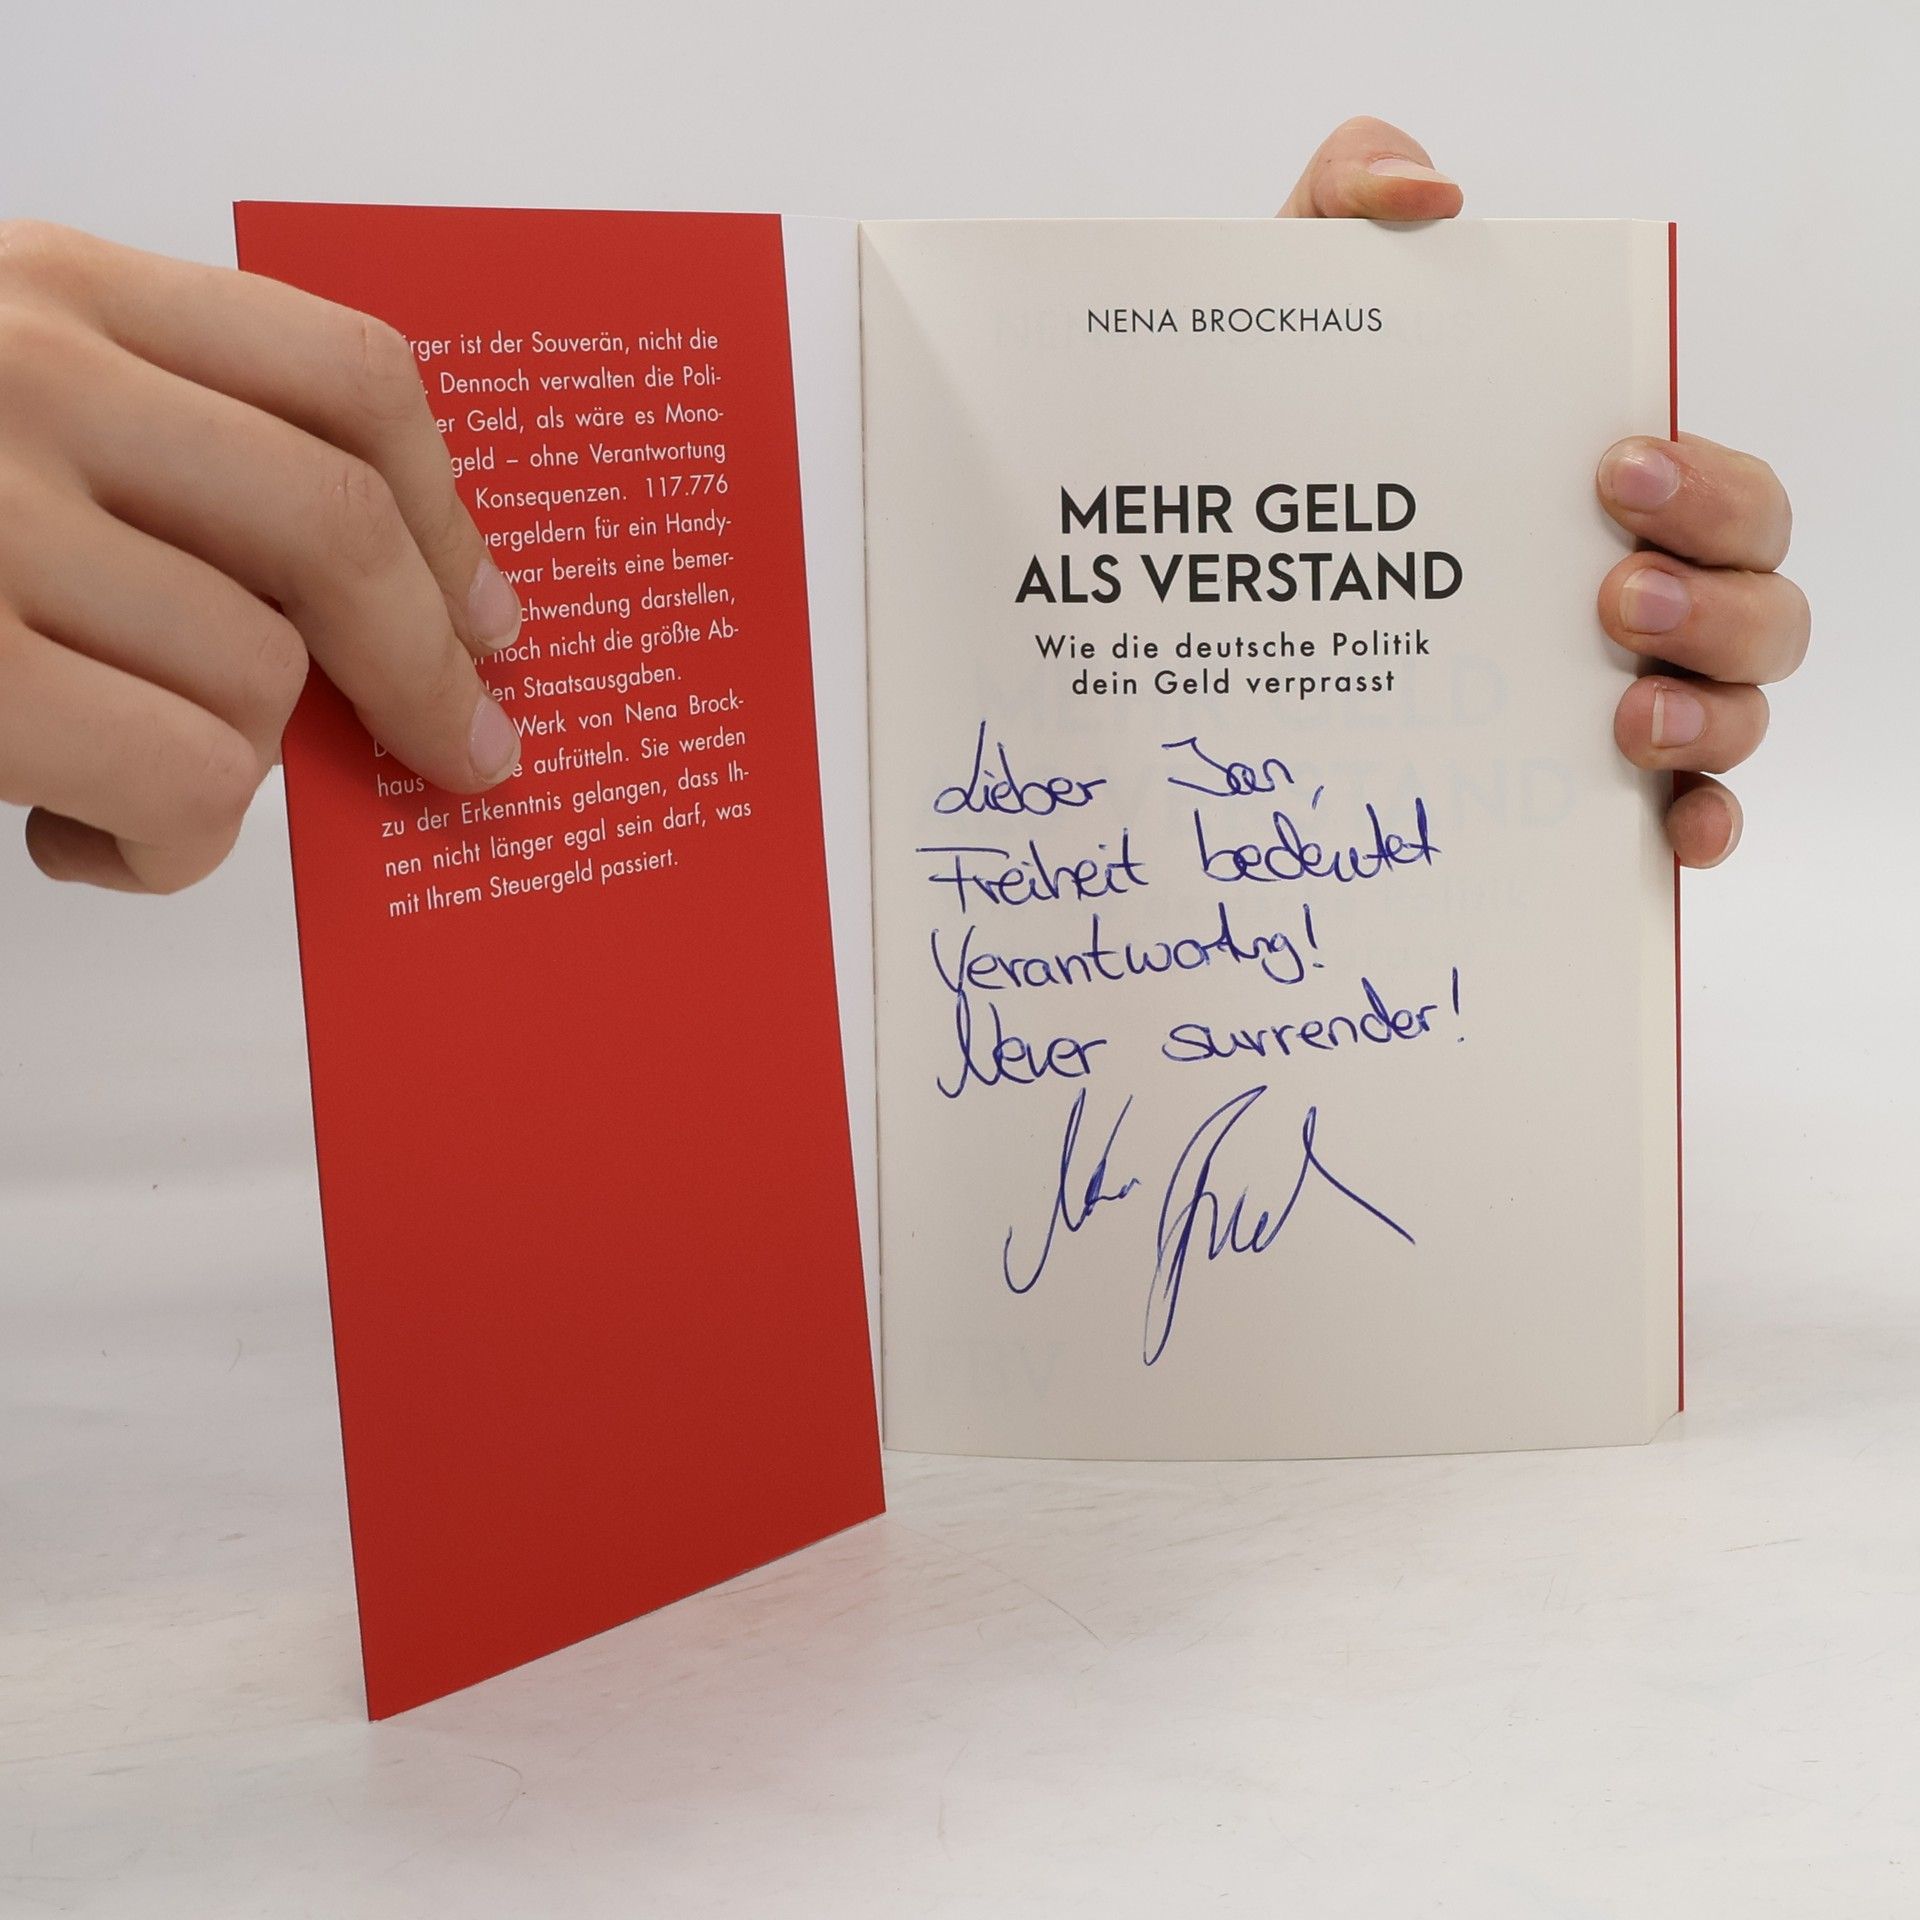 ger ist der Souverän, nicht die
Dennoch verwalten die Poli-
er Geld, als wäre es Mono-
geld – ohne Verantwortung
Konsequenzen. 117.776
uergeldern für ein Handy-
zwar bereits eine bemer-
chwendung darstellen,
noch nicht die größte Ab-
en Staatsausgaben.
Werk von Nena Brock-
haus aufrütteln. Sie werden
zu der Erkenntnis gelangen, dass Ih-
nen nicht länger egal sein darf, was
mit Ihrem Steuergeld passiert.
NENA BROCKHAUS
MEHR GELD
ALS VERSTAND
Wie die deutsche Politik
dein Geld verprasst
Lieber Jan,
Freiheit bedeutet
Verantwortung!
Never surrender!